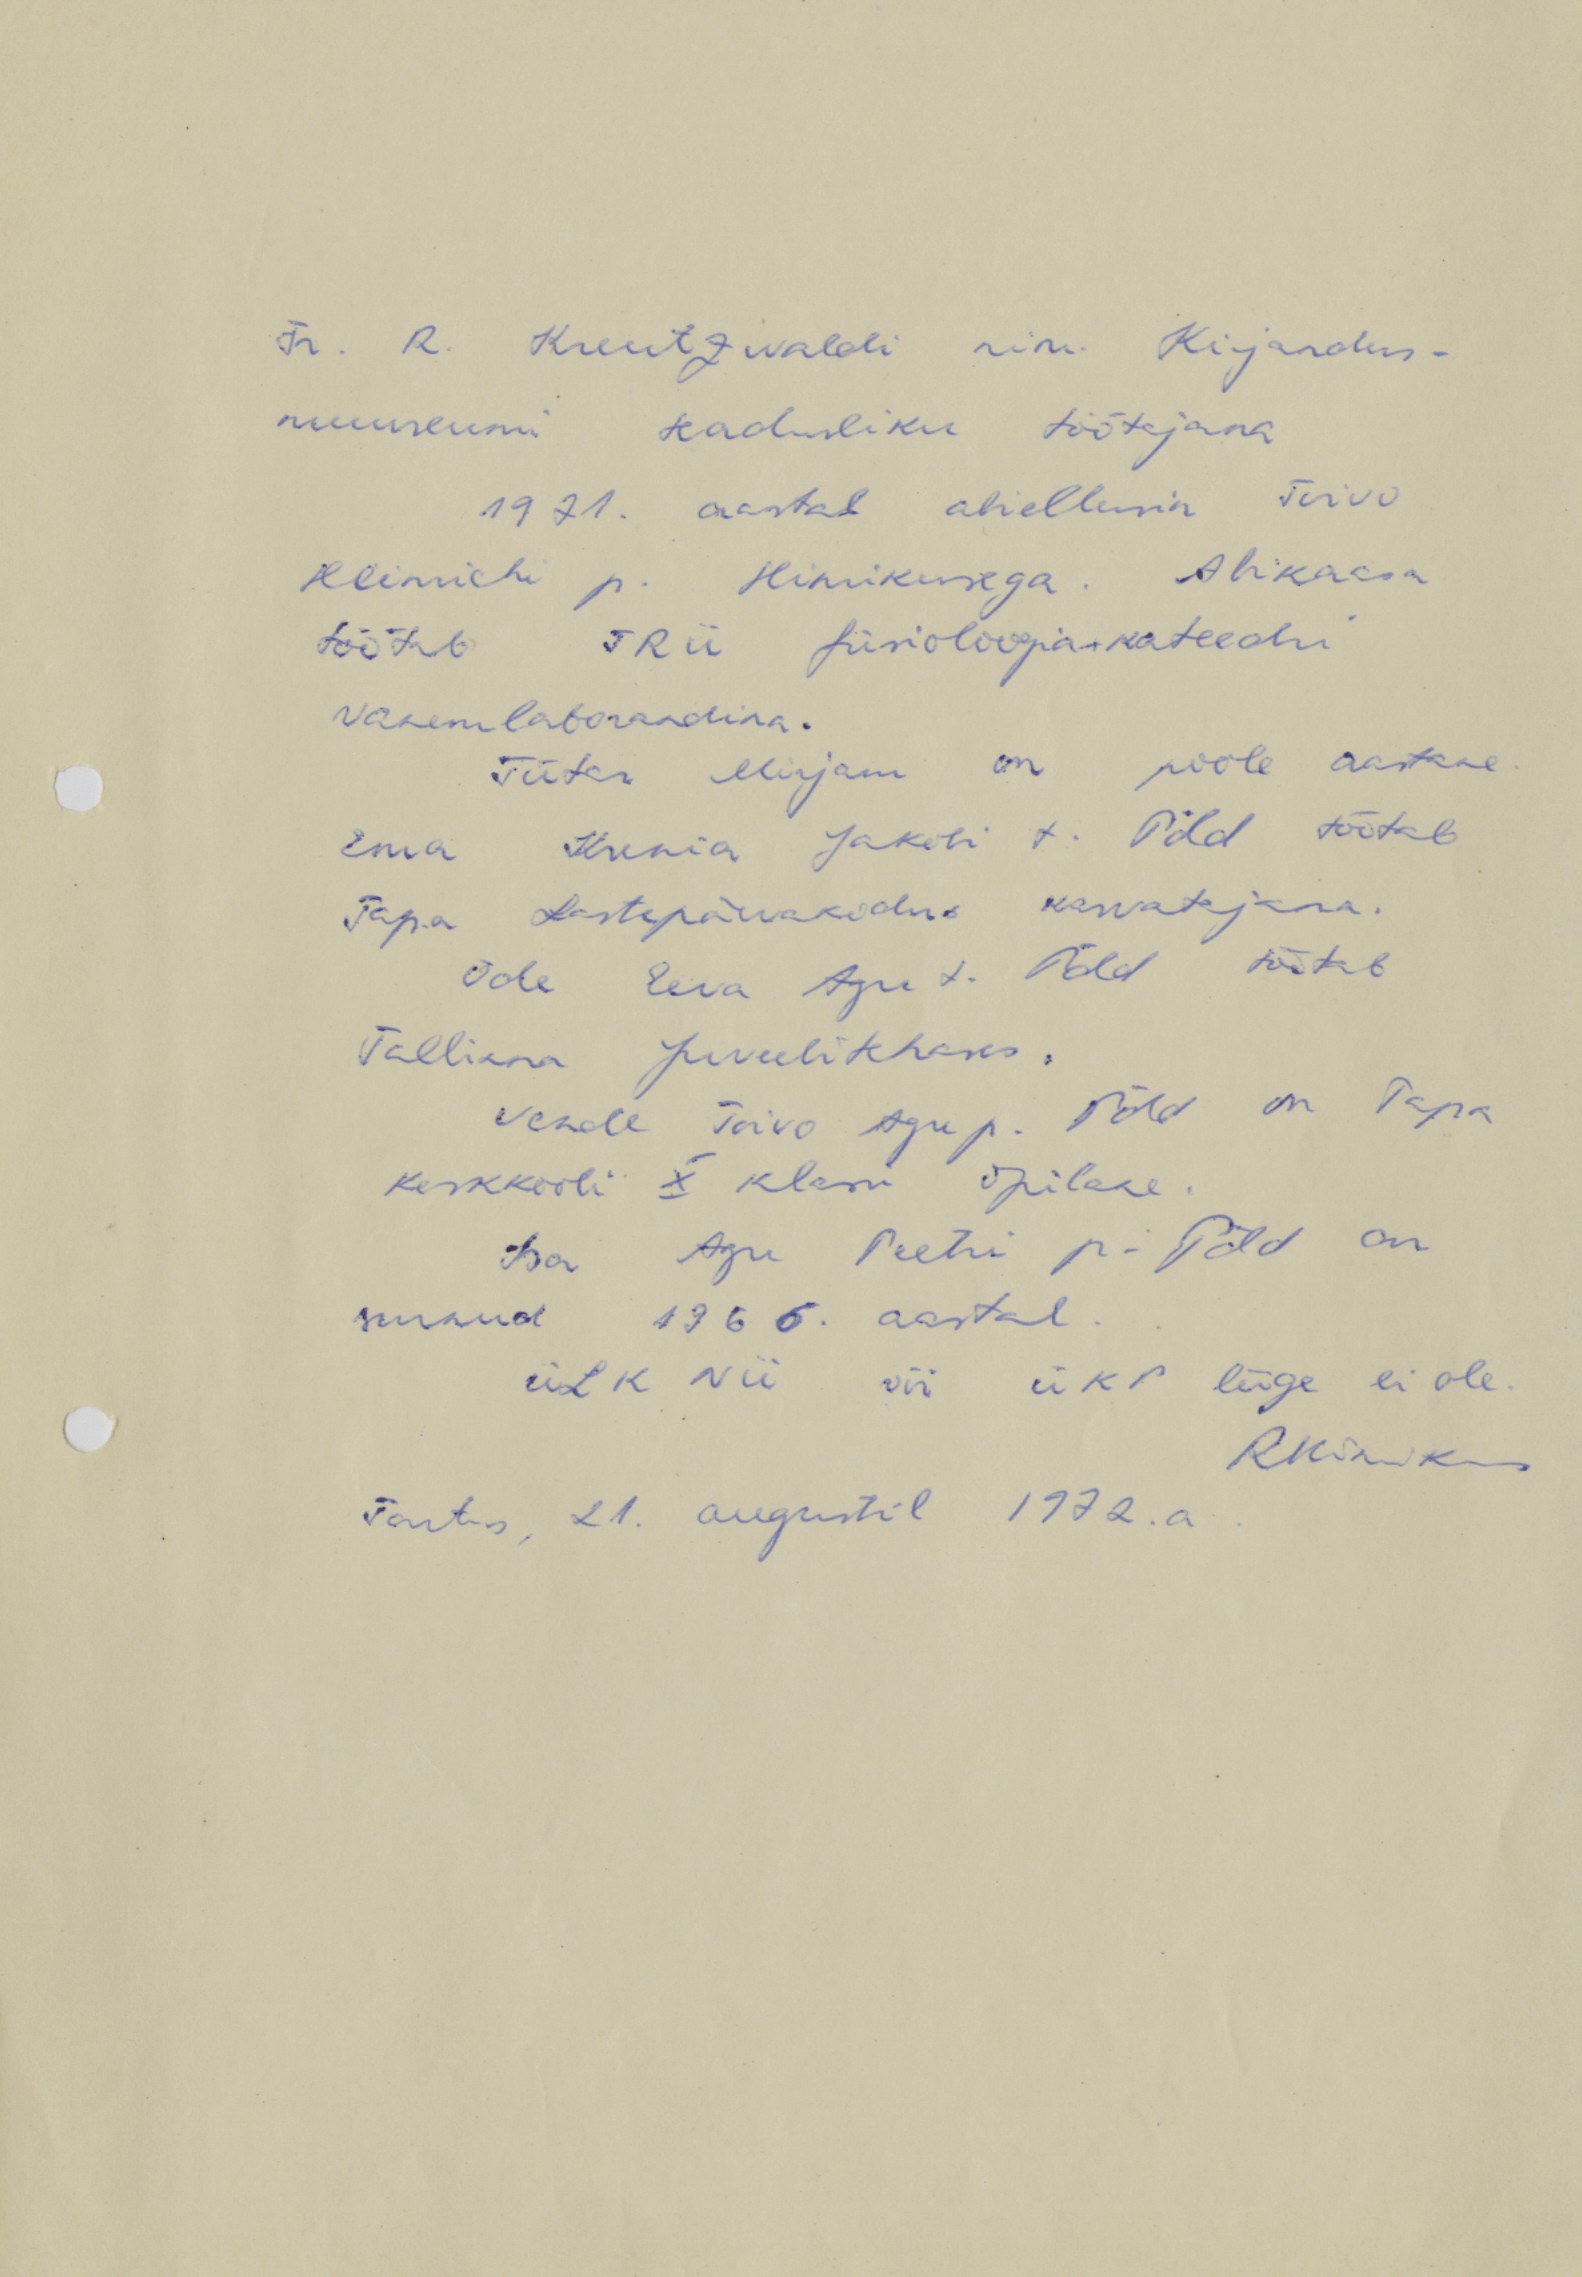 Fr. R. Kreutzwaldi nim. Kirjandus-
muuseumi teadusliku töötajana
1971. aastal abiellusin Toivo
Heinrichi p. Hinrikusega. Abikaasa
töötab TRÜ füsioloogia-kateedri
vanemlaborandina.
Tütar Mirjam on poole aastane.
Ema Ksenia Jakobi t. Põld töötab
Tapa Lastepäevakodus kasvatajana.
Õde Eeva Agu t. Põld töötab
Tallinna Juveelitehases.
Vende Toivo Agu p. Põld on Tapa
keskkooli X klassi õpilane.
Isa Agu Peetri p. Põld on
surnud 1966. aastal.
ÜLKNÜ või ÜKP liige ei ole.
RHinrikus
Tartus, 21. augustil 1972.a.